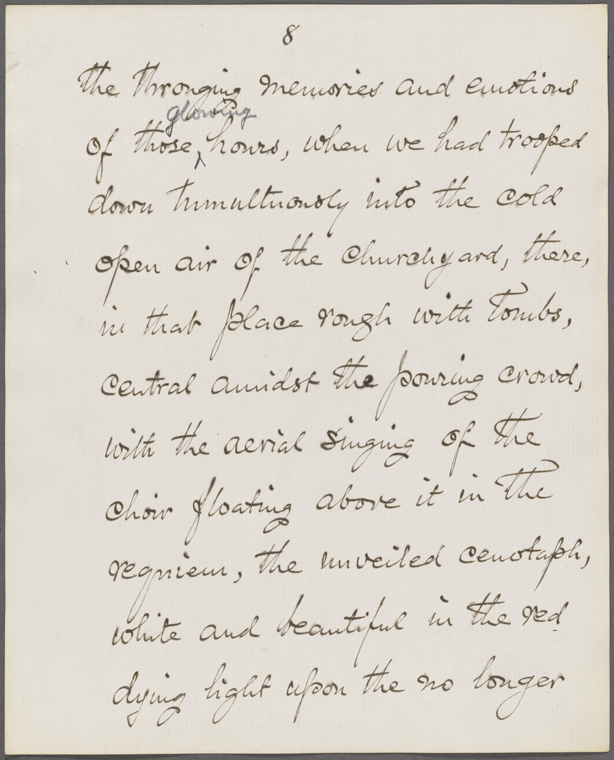 8
the thronging memories and emotions
glowing
of those, hours, when we had trooped
down tumultuously into the cold
open air of the churchyard, there,
in that place rough with tombs,
central amidst the pouring crowd,
with the aerial singing of the
choir floating above it in the
requiem, the unveiled cenotaph,
white and beautiful in the red
dying light upon the no longer